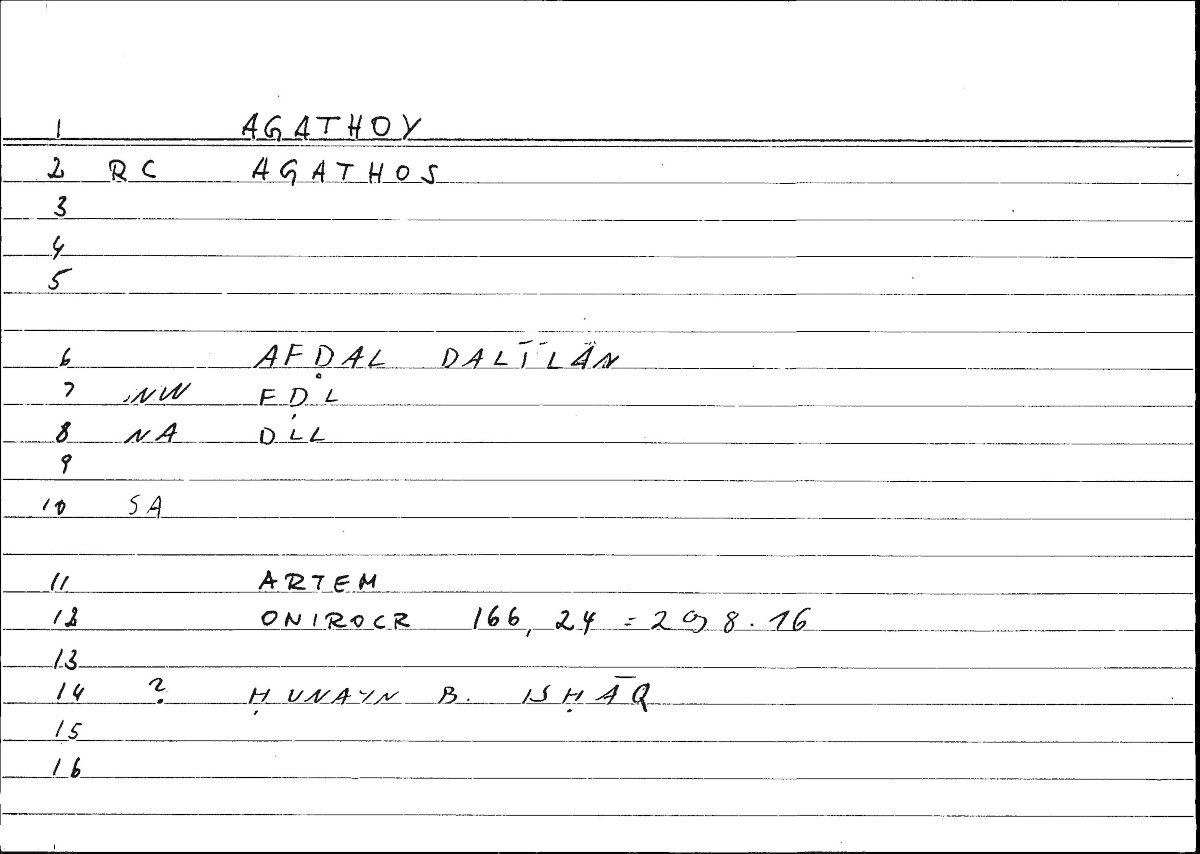 1 AGATHOY
2 RC AGATHOS
3
4
5
6 AFḌAL DALĪLĀN
7 NW FḌL
8 NA DLL
9
10 SA
11 ARTEM
12 ONIROCR 166, 24 = 298.16
13
14 ? ḤUNAYN B. ISḤĀQ
15
16